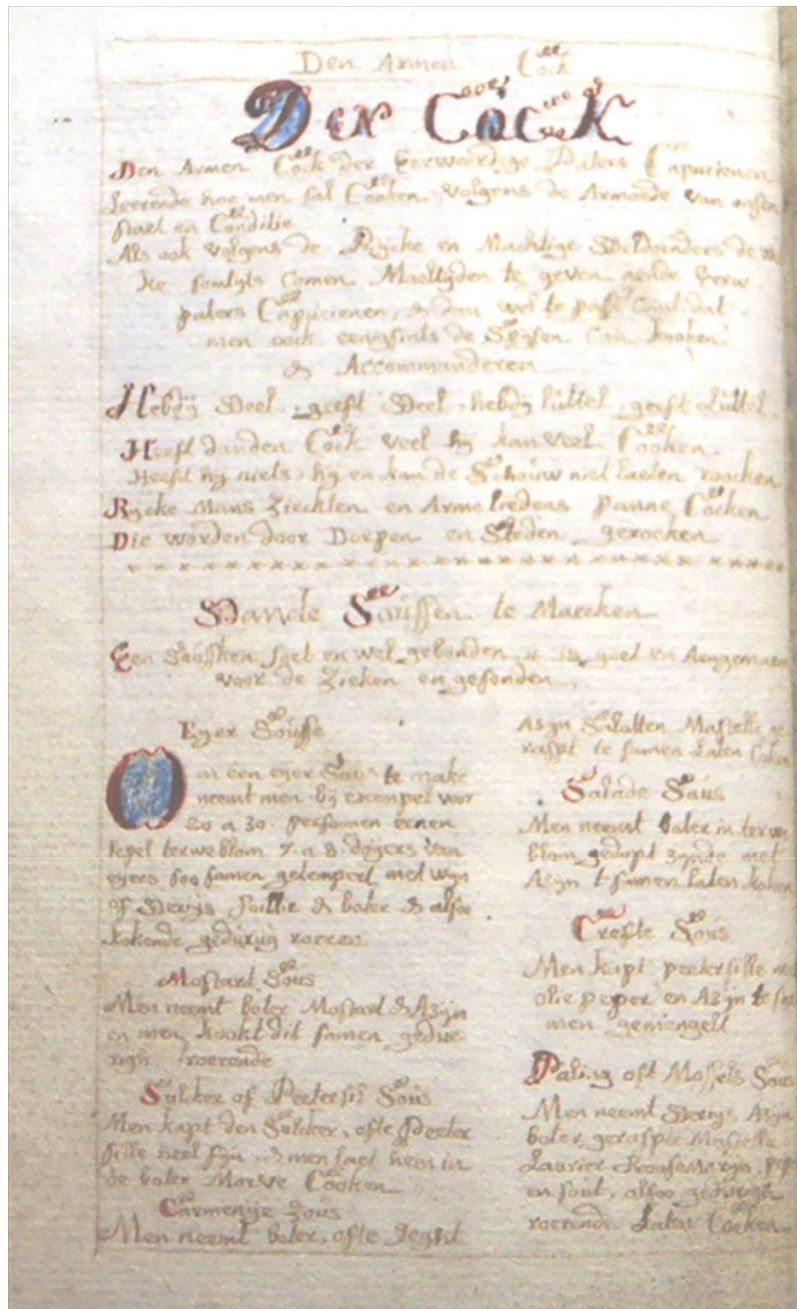 Den Armen Cock
Den Cock
Den Armen Cock der Eerweerdige Paters Capucienen
Leerende hoe men sal Cooken volgens de Armoede van onsen
staet en Conditie
Als ook volgens de Rijcke en Machtige Weldoenders de
ke somtyts Comen Maeltijden te geven aende Eerw
paters Capucienen, & dan wel te pas Comt dat
men oock eenigsints de Spysen Can kooken
& Accommanderen
Hebdij Veel geeft Veel hebdij luttel geeft Luttel
Heeft danden Cock veel hij kan veel Cooken
Heeft hij niets hij en kan de Schouw niet laeten roocken
Rijcke Mans Zieckten en Arme liedens panne Cocken
Die worden door Dorpen en Steden geroken
Vande Saussen te Maecken
Een Sausken and wel gebonden is goet en Aengenaem
voor de Zieken en gesonden
Eyer Sausse
Om een eyer Saus te make
neemt men bij exempel voor
20 a 30 persoonen eenen
lepel terwe blom 7 a 8 doijers van
eyers soo samen getempert met wyn
of Verjus & boter & alsoo
kokende gedurig roeren
Mostard Sous
Men neemt boter Mostard & Azijn
en men kookt dit samen gedue-
righ roerende
Sulker of Peetersil Sous
Men kapt den Sulker, ofte Peeter
sille heel fijn, & men laet hem in
de boter Morve Cooken
Carmenije Sous
Men neemt boter, ofte
Azijn Salotten
raspt te samen Laten Coken
Salade Saus
Men neemt boter in terwe
blom gedopt zynde met
Azijn t samen laten koken
Creefte Sous
Men kapt peetersille
olie peper en Azijn te sa
men gemengelt
Paling oft Mossels Saus
Men neemt Verjus Azijn
boter geraspte
Laurier Roosemarijn, pep
en sout, alsoo gedurigh
roerende Laten Coeken